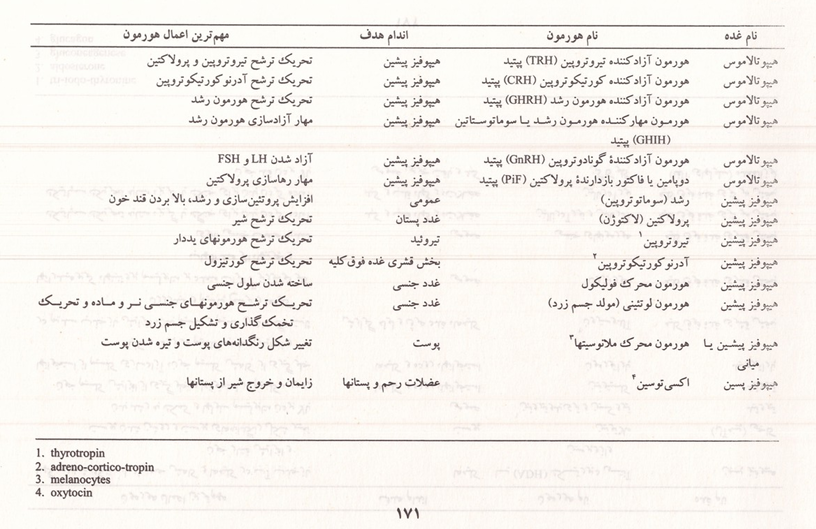 نام غده نام هورمون اندام هدف مهم‌ترین اعمال هورمون
هیپوتالاموس هورمون آزادکننده تیروتروپین (TRH) پپتید هیپوفیز پیشین تحریک ترشح تیروتروپین و پرولاکتین
هیپوتالاموس هورمون آزادکننده کورتیکوتروپین (CRH) پپتید هیپوفیز پیشین تحریک ترشح آدرنوکورتیکوتروپین
هیپوتالاموس هورمون آزادکننده هورمون رشد (GHRH) پپتید هیپوفیز پیشین تحریک ترشح هورمون رشد
هیپوتالاموس هورمون مهارکننده هورمون رشد یا سوماتوستاتین هیپوفیز پیشین مهار آزادسازی هورمون رشد
(GHIH) پپتید
هیپوتالاموس هورمون آزادکنندهٔ گونادوتروپین (GnRH) پپتید هیپوفیز پیشین آزاد شدن LH و FSH
هیپوتالاموس دوپامین یا فاکتور بازدارندهٔ پرولاکتین (PiF) پپتید هیپوفیز پیشین مهار رهاسازی پرولاکتین
هیپوفیز پیشین رشد (سوماتوتروپین) عمومی افزایش پروتئین‌سازی و رشد، بالا بردن قند خون
هیپوفیز پیشین پرولاکتین (لاکتوژن) غدد پستان تحریک ترشح شیر
هیپوفیز پیشین تیروتروپین۱ تیروئید تحریک ترشح هورمونهای یددار
هیپوفیز پیشین آدرنوکورتیکوتروپین۲ بخش قشری غده فوق‌کلیه تحریک ترشح کورتیزول
هیپوفیز پیشین هورمون محرک فولیکول غدد جنسی ساخته شدن سلول جنسی
هیپوفیز پیشین هورمون لوتئینی (مولد جسم زرد) غدد جنسی تحریک ترشح هورمونهای جنسی نر و ماده و تحریک
تخمک‌گذاری و تشکیل جسم زرد
هیپوفیز پیشین یا هورمون محرک ملانوسیتها۳ پوست تغییر شکل رنگدانه‌های پوست و تیره شدن پوست
میانی
هیپوفیز پسین اکسی‌توسین۴ عضلات رحم و پستانها زایمان و خروج شیر از پستانها
1. thyrotropin
2. adreno-cortico-tropin
3. melanocytes
4. oxytocin
۱۷۱